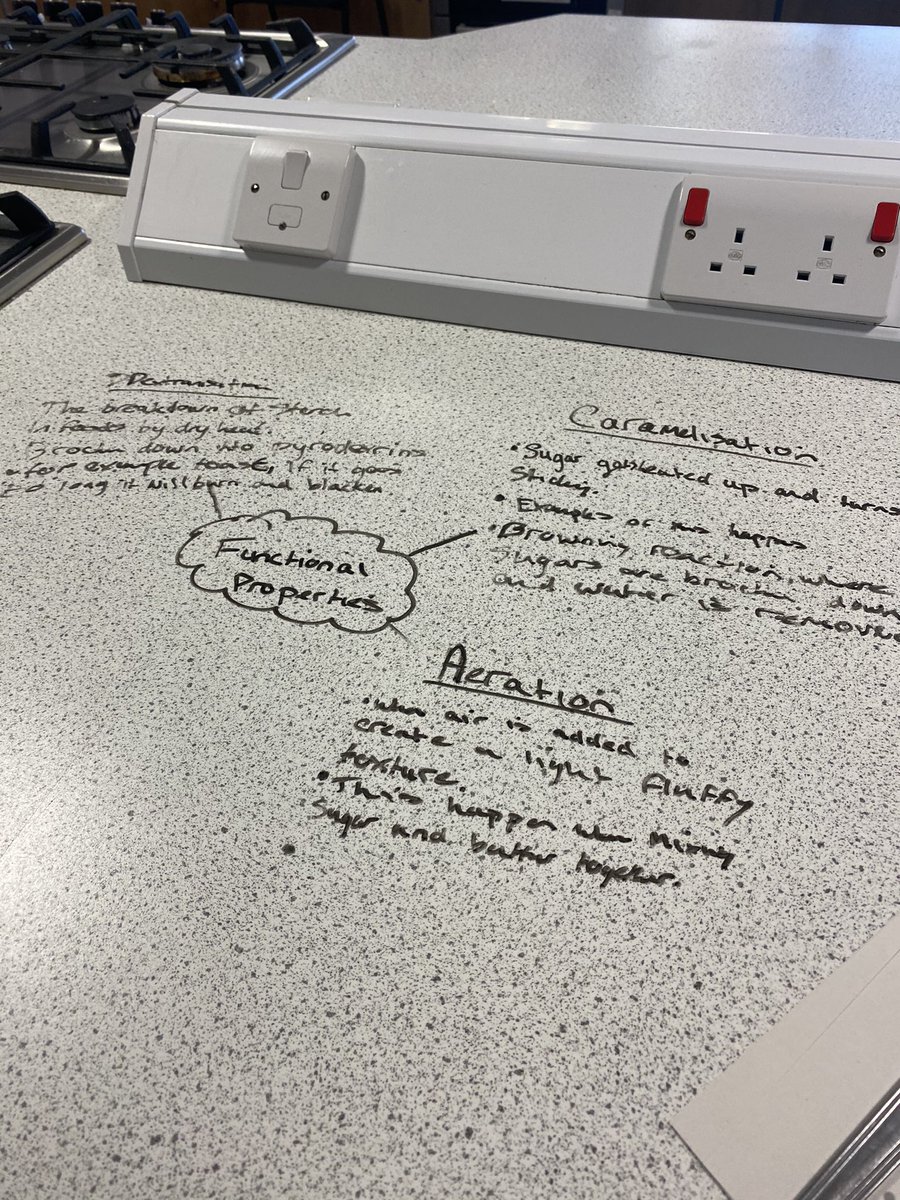 The breakdown of Starch
in foods by dry heat.
down into
for example toast, if it goes
long it will burn and blacken.
Functional
Properties
Caramelisation
• Sugar up and turns
Sticky.
• Examples of happens
• Browning reaction, where
Sugars are down
and water is
Aeration
• when air is added to
create a light fluffy
texture.
• This happen when Mixing
Sugar and butter together.
•